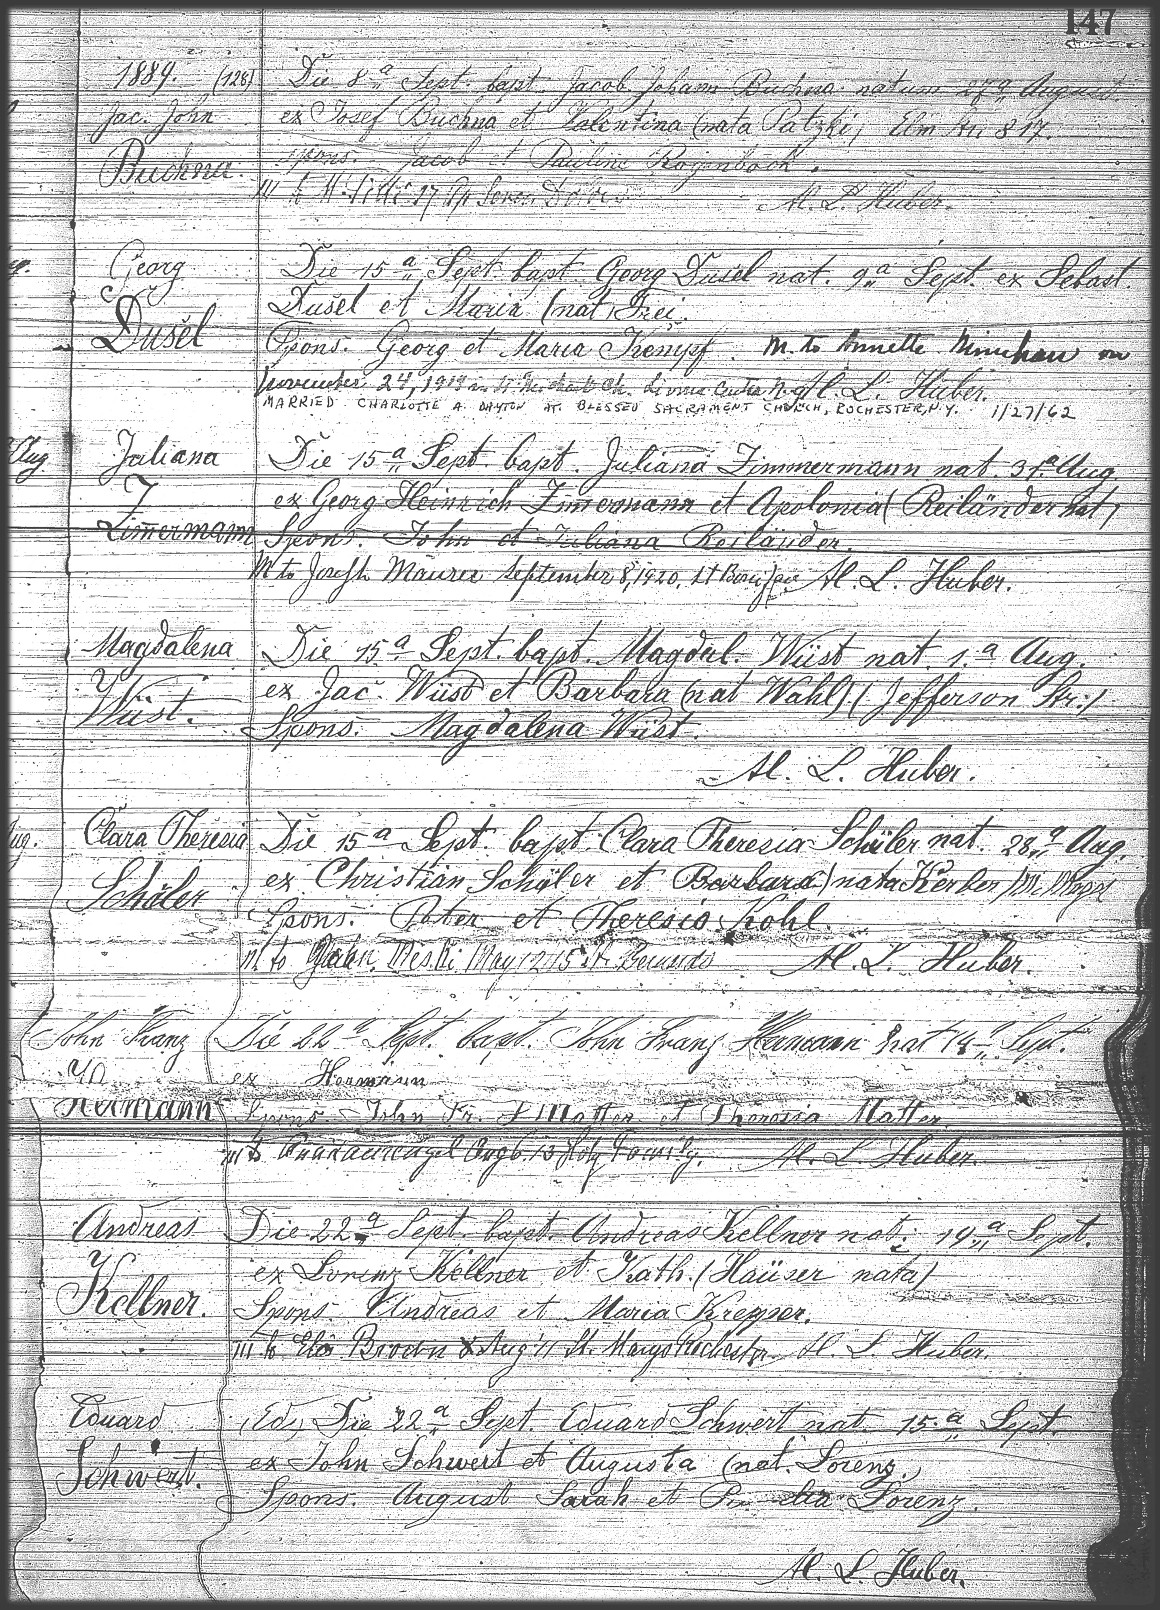 147
1889. (128) Die 8a Sept. bapt. Jacob Johann Buchna natum 27a August.
Jac. John ex Josef Buchna et Valentina (nata Patzki) Elm Str 817.
Buchna. spons. Jacob et Pauline
M. to 27 Al. L. Huber.
Georg Die 15a Sept. bapt. Georg Dusel nat. 9a Sept. ex Sebast.
Dusel Dusel et Maria (nat Frei.
Spons. Georg et Maria Kempf. M. to Annette on
November 24, 19 Al. L. Huber.
MARRIED CHARLOTTE A. DAYTON AT BLESSED SACRAMENT CHURCH, ROCHESTER, N.Y. 1/27/62
Aug Juliana Die 15a Sept. bapt. Juliana Zimmermann nat. 31a Aug.
Zimmermann ex Georg Heinrich Zimmermann et Apolonia (Reiländer nat)
Spons. John et Juliana Reiländer.
M to Joseph Maurer September 8, 1920, St Boniface Al. L. Huber.
Magdalena Die 15a Sept. bapt. Magdal. Wüst nat. 1.a Aug.
Wüst. ex Jac. Wüst et Barbara (nat Wahl) (Jefferson Str.)
Spons. Magdalena Wüst.
Al. L. Huber.
Aug. Clara Theresia Die 15a Sept. bapt. Clara Theresia Schäler nat. 28a Aug.
Schäler ex Christian Schäler et Barbara (nata Kerber)
Spons. Peter et Theresia Kohl.
M. to May 12 15 St. Al. L. Huber.
John Franz Die 22a Sept. bapt. John Franz Hermann nat 14a Sept.
ex Hermann
Hermann Spons. John Fr. Matter et Theresia Matter.
M to Aug 6. 13 Holy Family. Al. L. Huber.
Andreas Die 22a Sept. bapt. Andreas Kellner nat. 19a Sept.
Kellner. ex Lorenz Kellner et Kath. (Haüser nata)
Spons. Andreas et Maria
M to Brown 8 Aug '11 St. Marys Rochester Al. L. Huber.
Eduard (Ed) Die 22a Sept. Eduard Schwert nat. 15.a Sept.
Schwert. ex John Schwert et Augusta (nat. Lorenz.)
Spons. August Sarah et Lorenz.
Al. L. Huber.